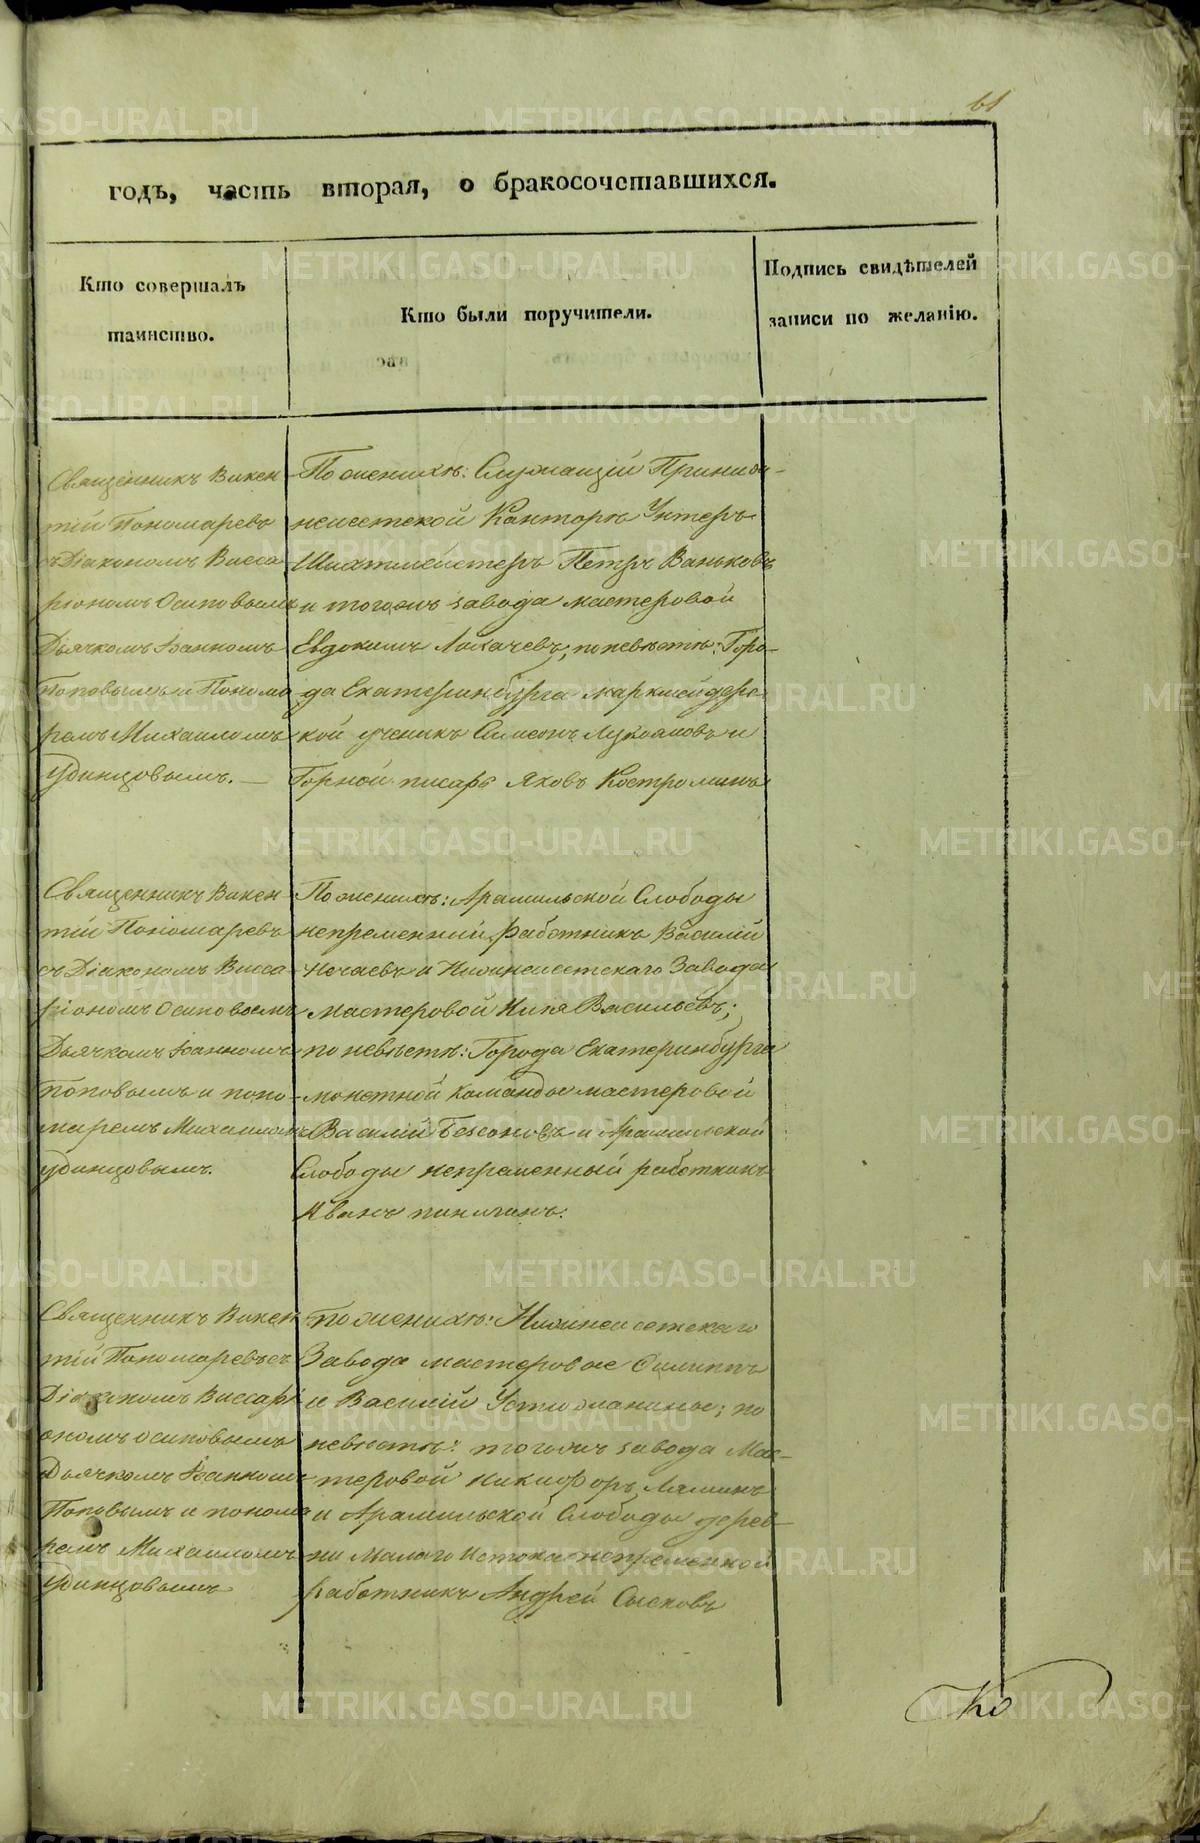 61
годъ, часть вторая, о бракосочетавшихся.
Кто совершалъ
таинство.
Кто были поручители.
Подпись свидѣтелей
записи по желанію.
Священникъ Викен
тій Пономаревъ
съ Діакономъ Висса
ріономъ Осиповымъ
Дьячкомъ Іоанномъ
Поповымъ и Понома
ремъ Михаиломъ
Удинцовымъ.
По женихѣ: Служащій при Нижне-
исетской Канторѣ Унтеръ
Шихтмейстеръ Петръ Ваньковъ
и тогожъ завода мастеровой
Евдокимъ Лохачевъ; по невѣстѣ: Горо-
да Екатеринбурга маркшейдерс
кой ученикъ Симеонъ и
Горной писарь Яковъ Костроминъ
Священникъ Викен
тій Пономаревъ
съ Діакономъ Висса
ріономъ Осиповымъ
Дьячкомъ Іоанномъ
Поповымъ и поно-
маремъ Михаиломъ
Удинцовымъ.
По женихѣ: Арамильской Слободы
непременный работникъ Василій
Нечаевъ и Нижнеисетскаго Завода
мастеровой Илья Васильевъ;
по невѣстѣ: Города Екатеринбурга
монетной команды мастеровой
Василій Безсоновъ и Арамильской
Слободы непременный работникъ
Иванъ пиничинъ.
Священникъ Викен
тій Пономаревъ съ
Діакономъ Виссарі
ономъ Осиповымъ
Дьячкомъ Іоанномъ
Поповымъ и понома
ремъ Михаиломъ
Удинцовымъ
по женихѣ: Нижнеисетскаго
Завода мастеровые Филиппъ
и Василій Устюжанины; по
невѣстѣ: тогожъ завода Мас-
теровой Никифоръ Ляминъ
и Арамильской Слободы дерев-
ни Малаго Истока непременной
работникъ Андрей Сысковъ
METRIKI.GASO-URAL.RU